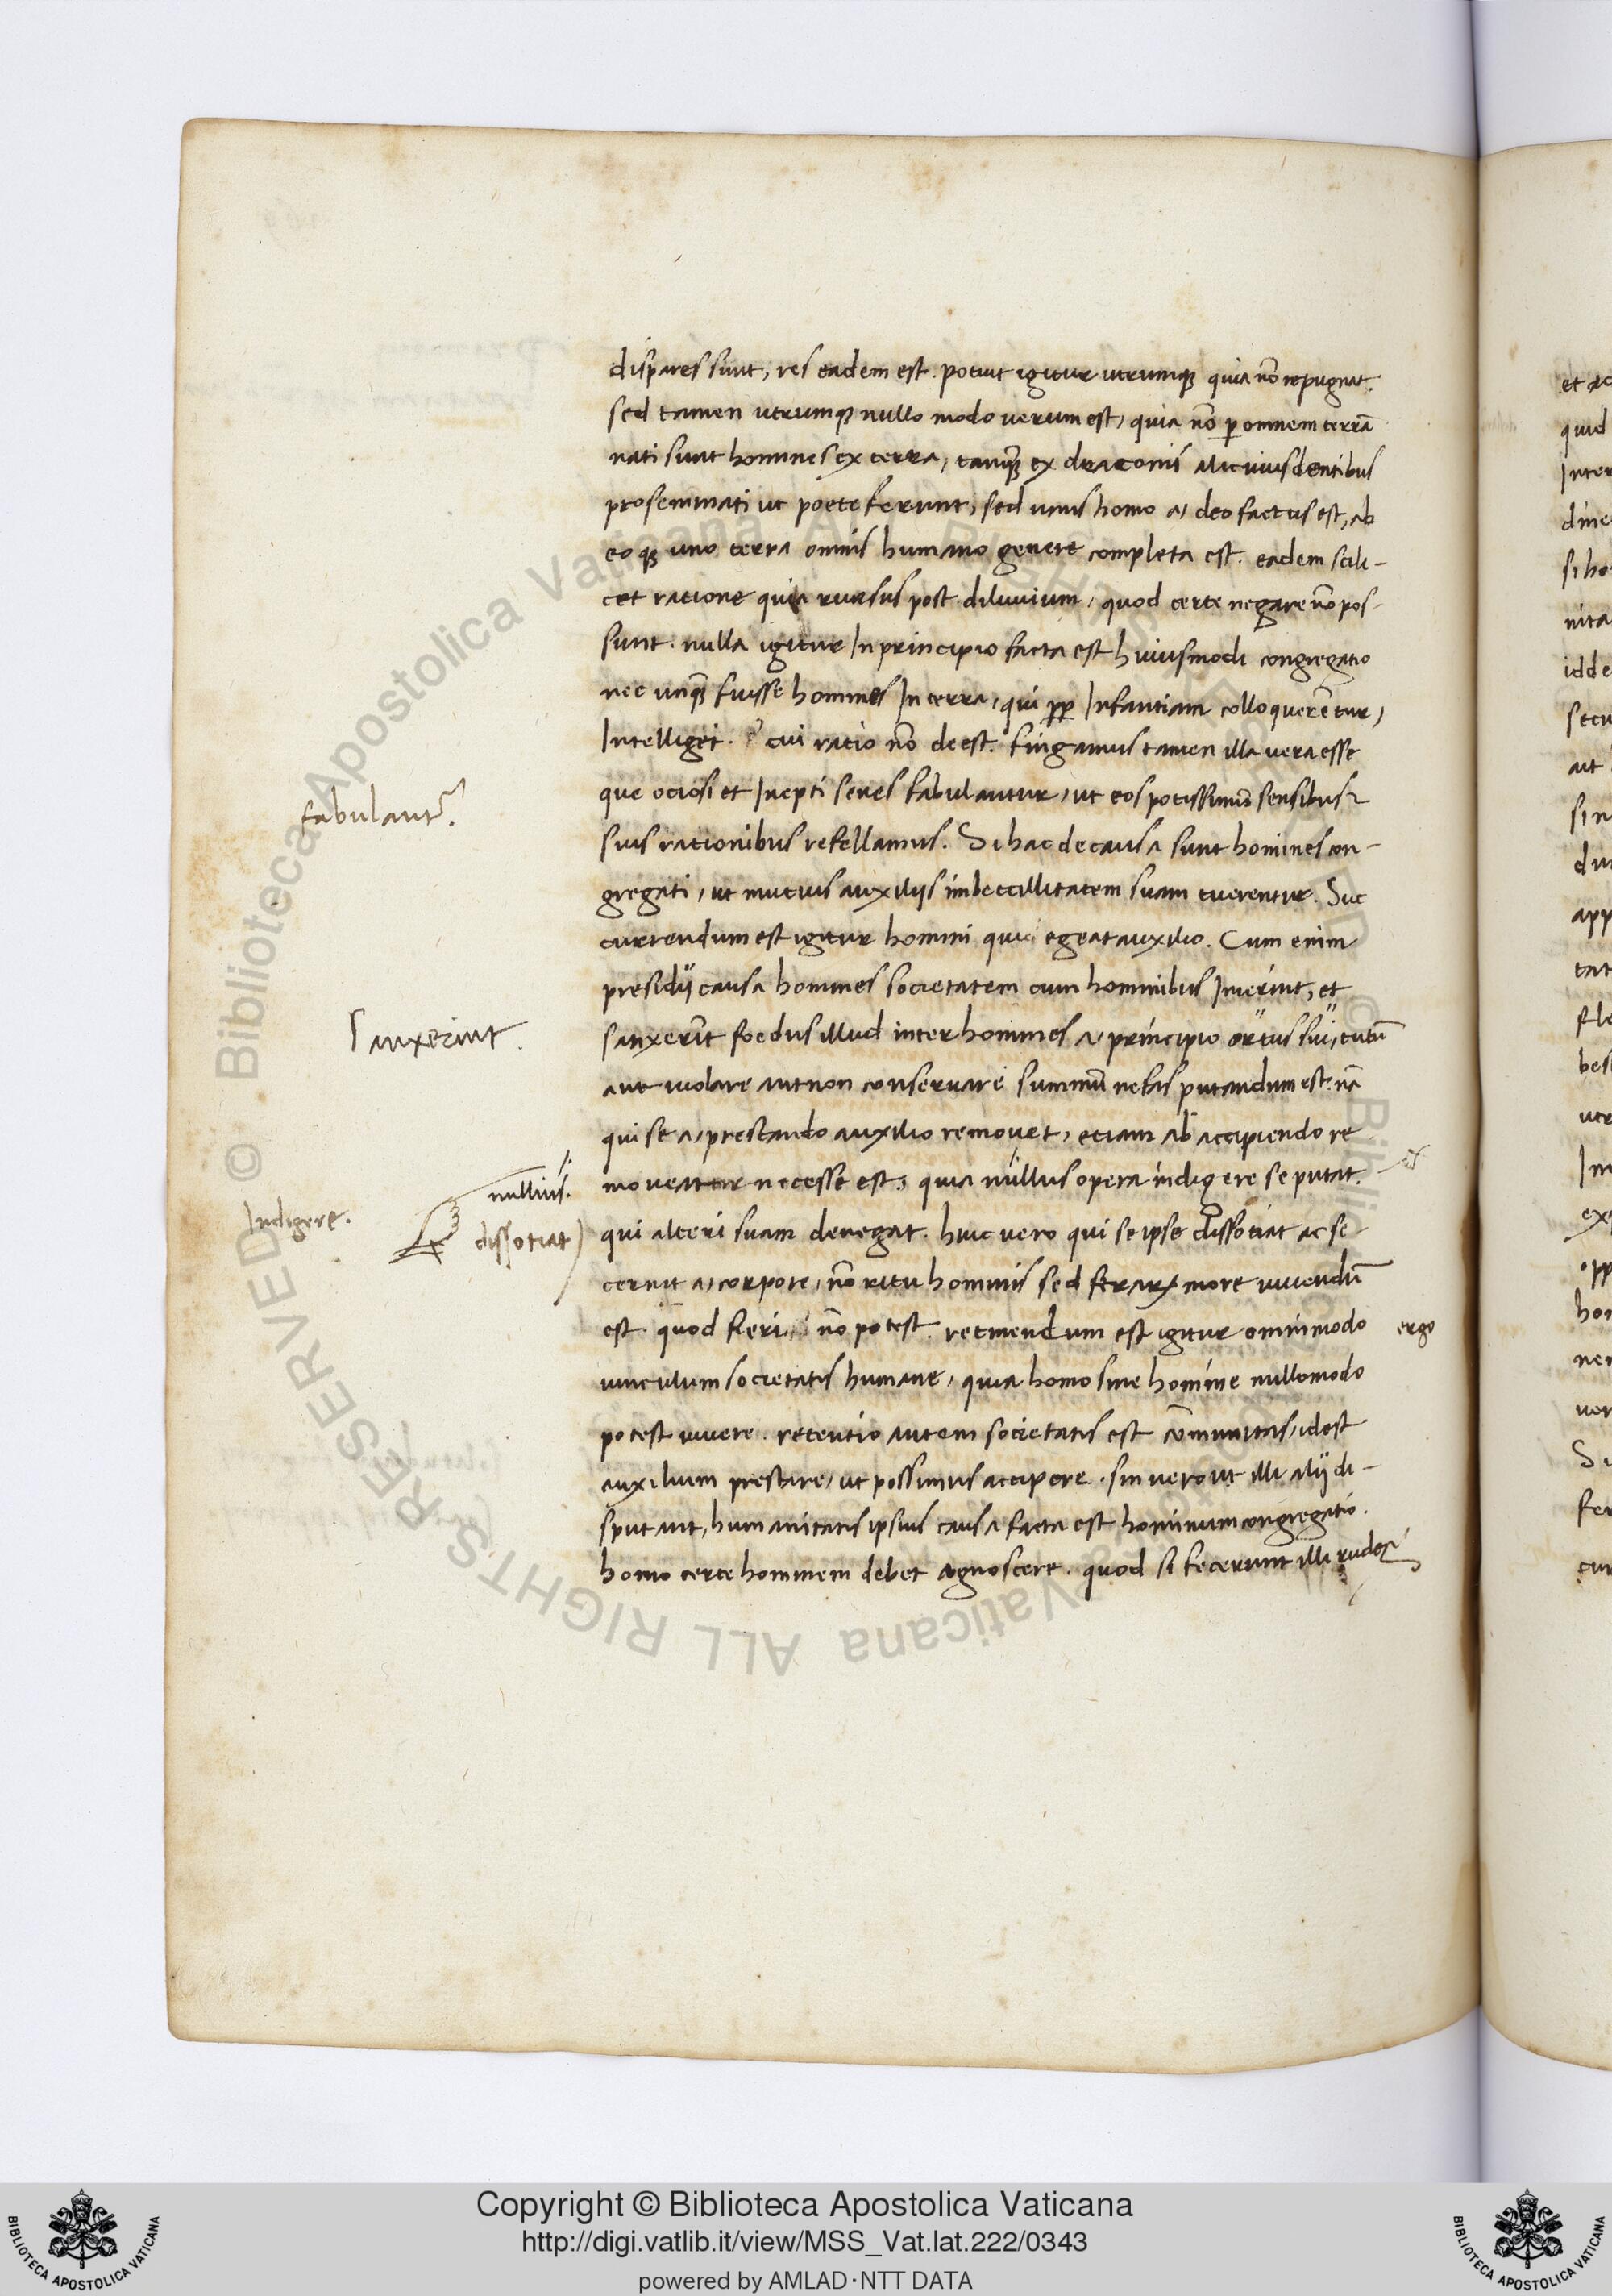 dispares sunt, res eadem est. potuit igitur utrumqꝫ quia nõ repugnat.
sed tamen utrumqꝫ nullo modo verum est, quia nõ ꝑ omnem terrã
nati sunt homines ex terra, tanqꝫ ex draconis alicuius dentibus
proseminati ut poete ferunt, sed unus homo a, deo factus est, ab
eo qꝫ uno terra omnis humano genere completa est. eadem scili-
cet ratione quia rursus post diluvium, quod certe negare nõ pos-
sunt. nulla igitur In principio facta est huiusmodi congregatio
nec unqꝫ fuisse homines In terra, qui ꝓp Infantiam colloquerẽtur,
Intelliget. cui ratio nõ deest. fingamus tamen illa vera esse
que ociosi et Inepti senes fabulantur, ut eos potissimũ sensibus
suis rationibus refellamus. Si hac de causa sunt homines con-
gregati, ut mutuis auxiliis imbecillitatem suam tuerentur. Suc
currendum est igitur homini qui egeat auxilio. Cum enim
presidii causa homines societatem cum hominibus Inierint, et
sanxerĩt foedus illud inter homines a, principio ortus sui, tutũ
aut violare aut non conservare summũ nefas putandum est. nã
qui se a, prestando auxilio removet, etiam ab accipiendo re
moveatur necesse est, quia nullus opera indigere se putat.
qui alteri suam denegat. huic vero qui se ipse dissotiat ac se
cernit a, corpore, nõ ritu hominis sed ferarꝝ more vivendũ
est. quod fieri nõ potest. retinendum est igitur omnimodo
vinculum societatis humane, quia homo sine homine nullomodo
potest vivere. retentio autem societatis est cõmunitas, idest
auxilium prestare, ut possimus accipere. sin vero ut illi alii di-
sputant, humanitatis ipsius causa facta est hominum congregatio.
homo certe hominem debet agnoscere. quod si fecerunt illi rudes
fabulant᷑.
Sanxerint.
nullius.
Indigere.
dissotiat)
ergo
et
quid
Inter
si ho
nita
id de
secu
ait
sin
app
tat
bes
hon
Copyright © Biblioteca Apostolica Vaticana
http://digi.vatlib.it/view/MSS_Vat.lat.222/0343
powered by AMLAD·NTT DATA
BIBLIOTECA APOSTOLICA VATICANA
BIBLIOTECA APOSTOLICA VATICANA
© Biblioteca Apostolica Vaticana ALL RIGHTS RESERVED
© Biblioteca Apostolica Vaticana ALL RIGHTS RESERVED